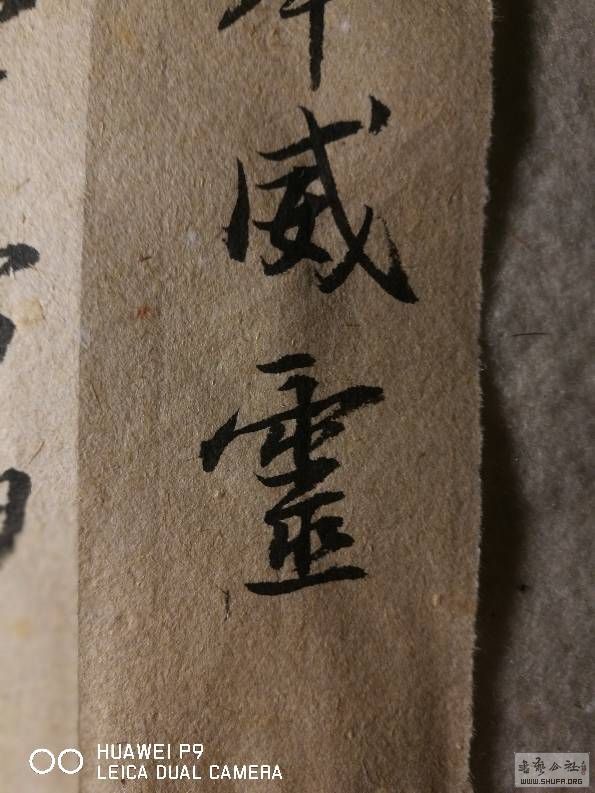 威靈
HUAWEI P9
LEICA DUAL CAMERA
書藝公社
WWW.SHUFA.ORG